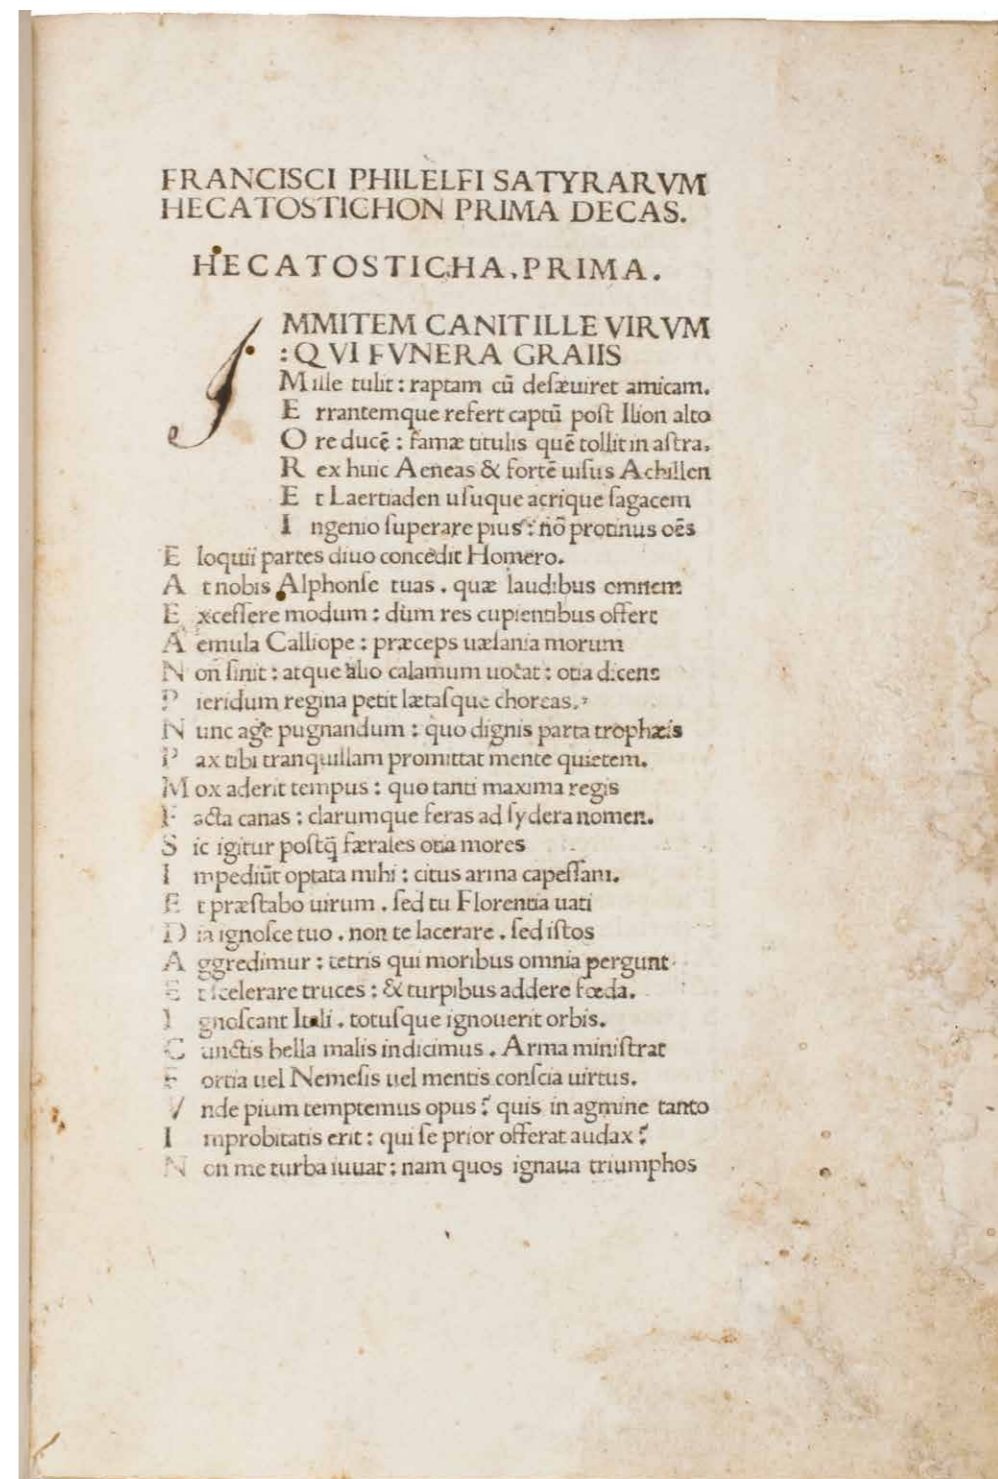 FRANCISCI PHILELFI SATYRARVM
HECATOSTICHON PRIMA DECAS.
HECATOSTICHA.PRIMA.
IMMITEM CANIT ILLE VIRVM
:QVI FVNERA GRAIIS
Mille tulit : raptam cū desæuiret amicam.
E rrantemque refert captū post Ilion alto
O re ducē : famæ titulis quē tollit in astra.
R ex huic Aeneas & fortē uisus Achillen
E t Laertiaden usuque acrique sagacem
I ngenio superare pius : nō protinus oēs
E loquii partes diuo concedit Homero.
A t nobis Alphonse tuas . quæ laudibus omnem
E xcessere modum : dum res cupientibus offert
A emula Calliope : præceps uæsania morum
N on sinit : atque alio calamum uocat : otia dicens
P ieridum regina petit lætasque choreas.
N unc age pugnandum : quo dignis parta trophæis
P ax tibi tranquillam promittat mente quietem.
M ox aderit tempus : quo tanti maxima regis
F acta canas : clarumque feras ad sydera nomen.
S ic igitur postq̄ færales otia mores
I mpediūt optata mihi : citus arma capessam.
E t præstabo uirum . sed tu Florentia uati
D ia ignosce tuo . non te lacerare . sed istos
A ggredimur : tetris qui moribus omnia pergunt
E t scelerare truces : & turpibus addere fœda.
I gnoscant Itali . totusque ignouerit orbis.
C unctis bella malis indicimus . Arma ministrat
F ortia uel Nemesis uel mentis conscia uirtus.
V nde pium temptemus opus ? quis in agmine tanto
I mprobitatis erit : qui se prior offerat audax ?
N on me turba iuuat : nam quos ignaua triumphos